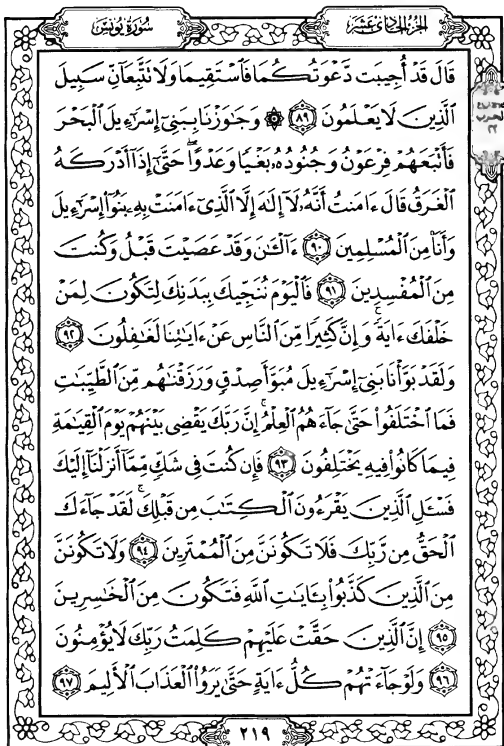 سُورَةُ يُونُسَ
الجُزْءُ الحَادِي عَشَرَ
قَالَ قَدْ أُجِيبَت دَّعْوَتُكُمَا فَٱسْتَقِيمَا وَلَا تَتَّبِعَآنِّ سَبِيلَ
ٱلَّذِينَ لَا يَعْلَمُونَ ٨٩ ۞ وَجَٰوَزْنَا بِبَنِىٓ إِسْرَٰٓءِيلَ ٱلْبَحْرَ
فَأَتْبَعَهُمْ فِرْعَوْنُ وَجُنُودُهُۥ بَغْيًا وَعَدْوًا ۖ حَتَّىٰٓ إِذَآ أَدْرَكَهُ
ٱلْغَرَقُ قَالَ ءَامَنتُ أَنَّهُۥ لَآ إِلَٰهَ إِلَّا ٱلَّذِىٓ ءَامَنَتْ بِهِۦ بَنُوٓا۟ إِسْرَٰٓءِيلَ
وَأَنَا۠ مِنَ ٱلْمُسْلِمِينَ ٩٠ ءَآلْـَٰٔنَ وَقَدْ عَصَيْتَ قَبْلُ وَكُنتَ
مِنَ ٱلْمُفْسِدِينَ ٩١ فَٱلْيَوْمَ نُنَجِّيكَ بِبَدَنِكَ لِتَكُونَ لِمَنْ
خَلْفَكَ ءَايَةً ۚ وَإِنَّ كَثِيرًا مِّنَ ٱلنَّاسِ عَنْ ءَايَٰتِنَا لَغَٰفِلُونَ ٩٢
وَلَقَدْ بَوَّأْنَا بَنِىٓ إِسْرَٰٓءِيلَ مُبَوَّأَ صِدْقٍ وَرَزَقْنَٰهُم مِّنَ ٱلطَّيِّبَٰتِ
فَمَا ٱخْتَلَفُوا۟ حَتَّىٰ جَآءَهُمُ ٱلْعِلْمُ ۚ إِنَّ رَبَّكَ يَقْضِى بَيْنَهُمْ يَوْمَ ٱلْقِيَٰمَةِ
فِيمَا كَانُوا۟ فِيهِ يَخْتَلِفُونَ ٩٣ فَإِن كُنتَ فِى شَكٍّ مِّمَّآ أَنزَلْنَآ إِلَيْكَ
فَسْـَٔلِ ٱلَّذِينَ يَقْرَءُونَ ٱلْكِتَٰبَ مِن قَبْلِكَ ۚ لَقَدْ جَآءَكَ
ٱلْحَقُّ مِن رَّبِّكَ فَلَا تَكُونَنَّ مِنَ ٱلْمُمْتَرِينَ ٩٤ وَلَا تَكُونَنَّ
مِنَ ٱلَّذِينَ كَذَّبُوا۟ بِـَٔايَٰتِ ٱللَّهِ فَتَكُونَ مِنَ ٱلْخَٰسِرِينَ
٩٥ إِنَّ ٱلَّذِينَ حَقَّتْ عَلَيْهِمْ كَلِمَتُ رَبِّكَ لَا يُؤْمِنُونَ
٩٦ وَلَوْ جَآءَتْهُمْ كُلُّ ءَايَةٍ حَتَّىٰ يَرَوُا۟ ٱلْعَذَابَ ٱلْأَلِيمَ ٩٧
٢١٩